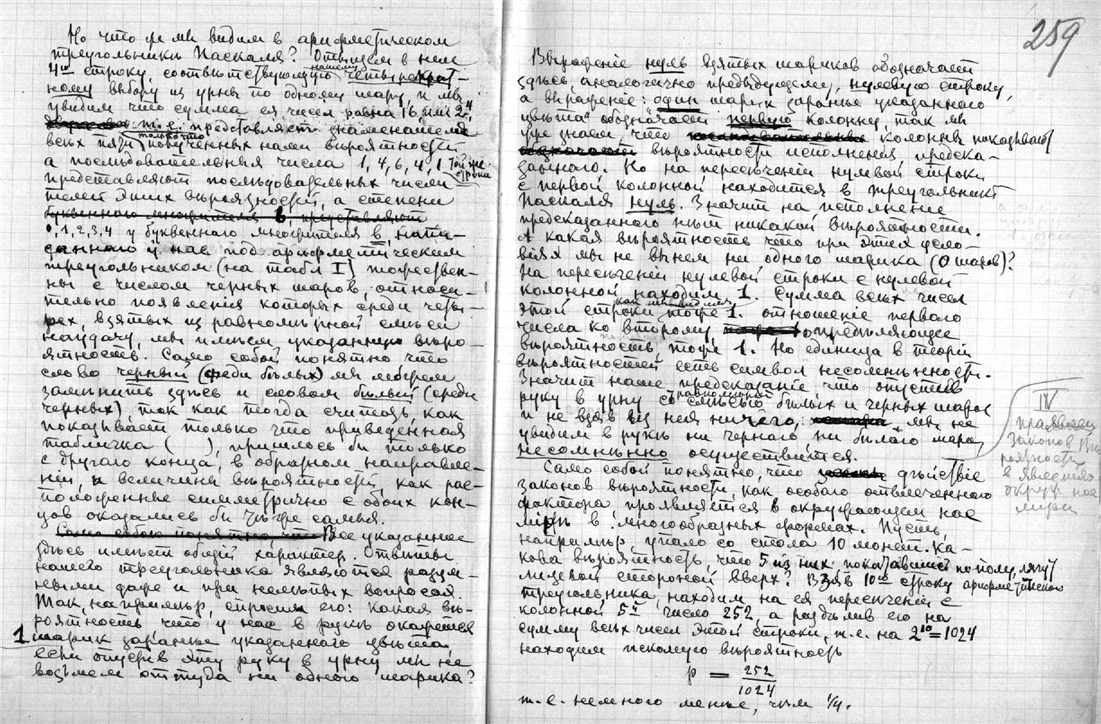 Но что же мы видим в арифметическом
треугольнике Паскаля? Отыщем в нем
4ую строку, соотвѣтствующую нашему четырекрат-
ному выбору из урны по одному шару и мы
увидим что сумма ея чисел равна 16 или 2⁴
т.е. представляет знаменателе
всѣх пяти только что полученных нами вѣроятностей
а послѣдовательныя числа 1, 4, 6, 4, 1 той же строки
представляют послѣдовательных числи
телей этих вѣроятностей, а степени
буквеннаго множителя в, представляют
0, 1, 2, 3, 4 у буквеннаго множителя в, напи-
саннаго у нас под арифметическим
треугольником (на табл I) тожествен-
ны с числом черных шаров, относи-
тельно появленія которых среди четы-
рех, взятых из равномѣрной смѣси
наудачу, мы имѣем указанную вѣро-
ятность. Само собой понятно что
слово черный (среди бѣлых) мы можем
замѣнить здѣсь и словом бѣлый (среди
черных) так как тогда считать, как
показывает только что приведенная
табличка ( ), пришлось бы только
с другаго конца, в обратном направле-
ніи, а величины вѣроятностей, как рас-
положенные симметрично с обоих кон-
цов оказались бы тѣ же самыя.
Само собою понятно, что Все указанное
здѣсь имѣет общій характер. Отвѣты
нашего треугольника являются разум-
ными даже и при нелѣпых вопросах.
Так, напримѣр, спросим его: какая вѣ-
роятность что у нас в рукѣ окажется
1 шарик заранѣе указаннаго цвѣта,
если опустив эту руку в урну мы не
возьмем оттуда ни одного шарика?
259
Выражение нуль взятых шариков обозначает
здѣсь, аналогично предыдущему, нулевую строку,
а выражение: один шарик заранѣе указаннаго
цвѣта обозначает первую колонку, так мы
уже знаем что колонны показывают
вѣроятности исполнения предска-
заннаго. Но на пересѣчении нулевой строки
с первой колонной находится в треугольникѣ
Паскаля нуль. Значит на исполнение
предсказаннаго нѣт никакой вѣроятности.
А какая вѣроятность что при этих усло-
віях мы не вынем ни одного шарика (0 шаров)?
На пересѣчении нулевой строки с нулевой
колонной находим 1. Сумма всѣх чисел
этой строки как мы видим тоже 1. отношение перваго
числа ко второму опредѣляющее
вѣроятность тоже 1. Но единица в теоріи
вѣроятностей есть символ несомнѣнности.
Значит наше предсказание что опустив
руку в урну с равномѣрной смѣсью бѣлых и черных шаров
и не взяв из нея ничего, мы не
увидим в рукѣ ни чернаго ни бѣлаго шара,
несомнѣнно осуществится.
Само собой понятно, что дѣйствіе
законов вѣроятности, как особаго отвлеченнаго
фактора проявляется в окружающем нас
мірѣ в многообразных формах. Пусть,
напримѣр упало со стола 10 монет. Ка-
кова вѣроятность, что 5 из них по полу лягут
лицевой стороной вверх? Взяв 10ую строку арифметическаго
треугольника, находим на ея пересѣчении с
колонной 5й число 252, а раздѣлив его на
сумму всѣх чисел этой строки, т.е. на 2¹⁰=1024
находим искомую вѣроятность
p = 252/1024
т.е. немного менѣе, чѣм 1/4.
IV
проявление
законов вѣ
роятности
в явлениях
окруж нас
міра